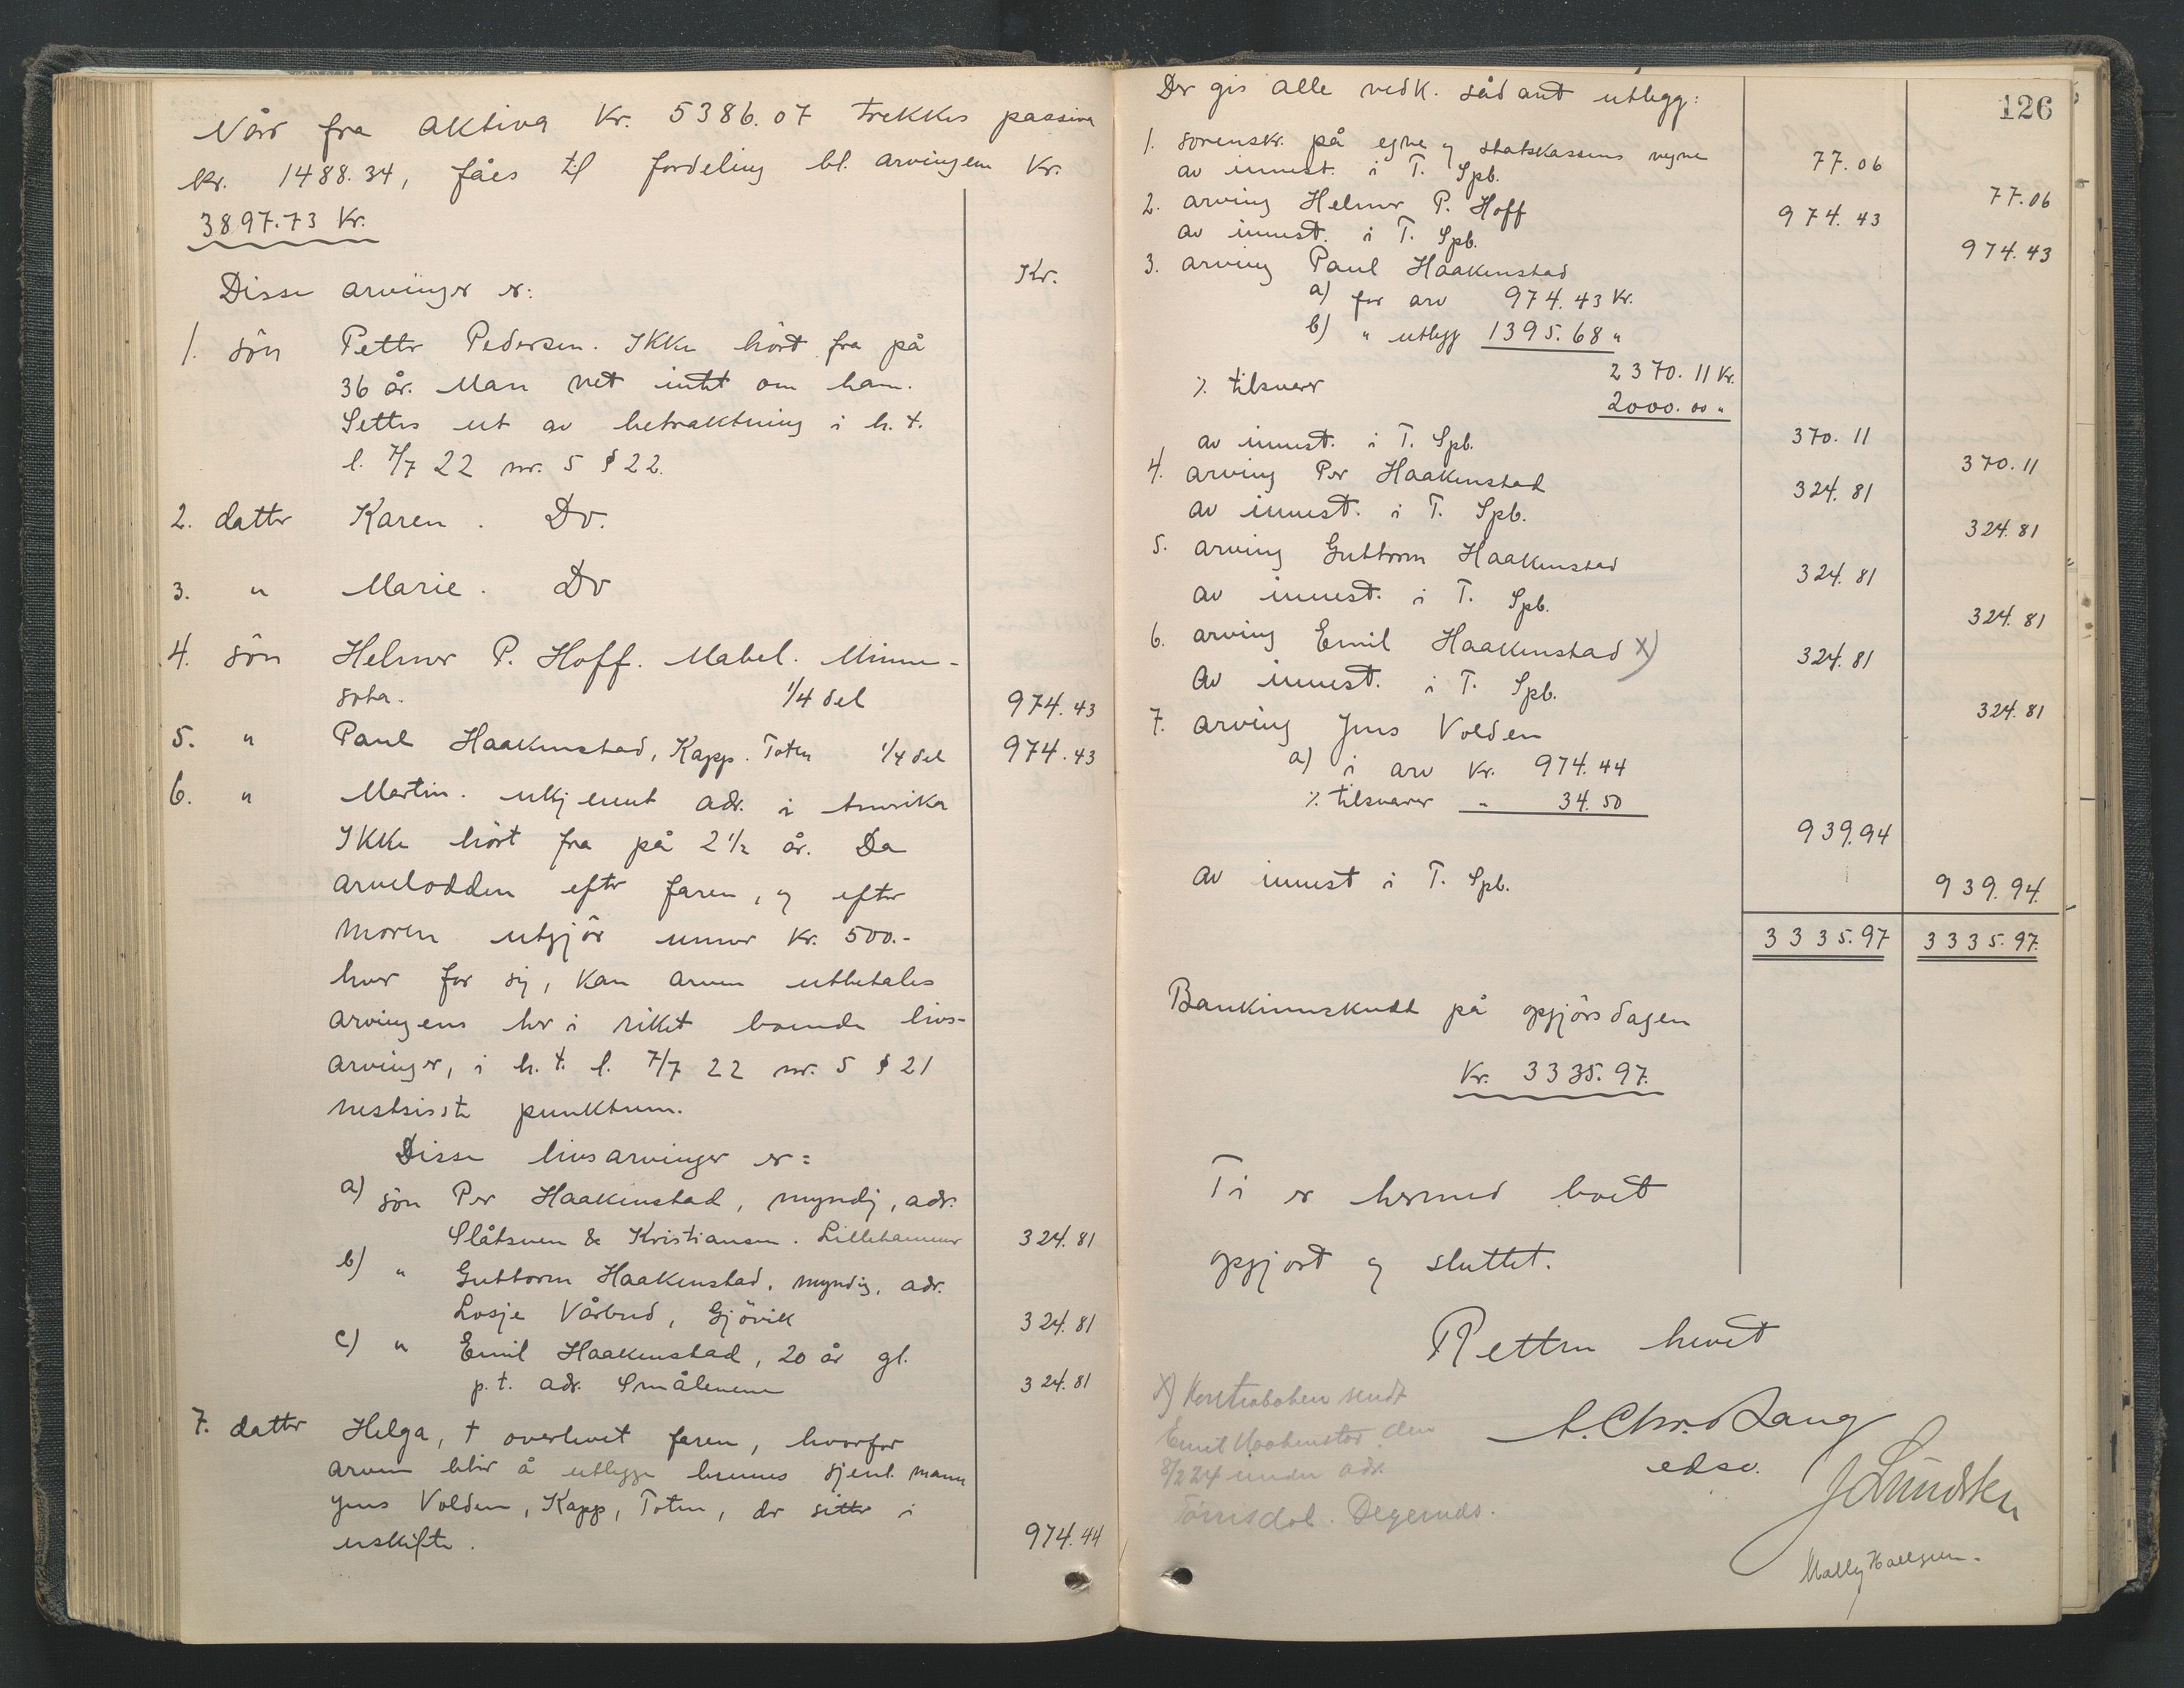 Når fra aktiva Kr. 5386.07 trekkes passiva
kr. 1488.34, fåes til fordeling bl. arvingene Kr.
3897.73 Kr.
Disse arvinger er: Kr.
1. sön Petter Pedersen. Ikke hört fra på
36 år. Man vet intet om ham.
Settes ut av betraktning i h. t.
l. 7/7 22 nr. 5 § 22.
2. datter Karen. Do.
3. " Marie. Do
4. sön Helmer P. Hoff. Mabel. Minne-
sota. 1/4 del 974.43
5. " Paul Haakenstad, Kapp. Toten 1/4 del 974.43
6. " Martin. ukjennt adr. i Amerika
Ikke hört fra på 2 1/2 år. Da
arvelodden efter faren, og efter
moren utgjör under kr. 500.-
hver for sig, kan arven utbetales
arvingens her i riket boende livs-
arvinger, i h. t. l. 7/7 22 nr. 5 § 21
nestsiste punktum.
Disse livsarvinger er:
a) sön Per Haakenstad, myndig, adr.
Slåtsveen & Kristiansen. Lillehammer 324.81
b) " Guttorm Haakenstad, myndig, adr.
Losje Vårbud, Gjövik 324.81
c) " Emil Haakenstad, 20 år gl.
p.t. adr. Smålenene 324.81
7. datter Helga, † overlevet faren, hvorfor
arven blir å utlegge hennes gjenl. mann
Jens Volden, Kapp, Toten, der sitter i
uskifte. 974.44
126
Der gis alle vedk. sådant utlegg:
1. sorenskr. på egne og statskassens vegne 77.06
av innest. i T. Spb. 77.06
2. arving Helmer P. Hoff 974.43
av innest. i T. Spb. 974.43
3. arving Paul Haakenstad
a) for arv 974.43 Kr.
b) " utlegg 1395.68 "
2370.11 Kr.
% tilsvarer 2000.00 "
370.11
av innest. i T. Spb. 370.11
4. arving Per Haakenstad 324.81
av innest. i T. Spb. 324.81
5. arving Guttorm Haakenstad 324.81
av innest. i T. Spb. 324.81
6. arving Emil Haakenstad x) 324.81
av innest. i T. Spb. 324.81
7. arving Jens Volden
a) i arv Kr. 974.44
% tilsvarer " 34.50
939.94
av innest i T. Spb. 939.94
3335.97 3335.97
Bankinnskudd på opgjörsdagen
Kr. 3335.97
Ti er hermed boet
opgjort og sluttet.
Retten hevet
A. Chr. Bang
edsv.
x) Kontraboken sendt
Emil Haakenstad den
8/2 24 under adr.
Tömsdal. Degernds.
J Lundsten
Mally Hallgren.